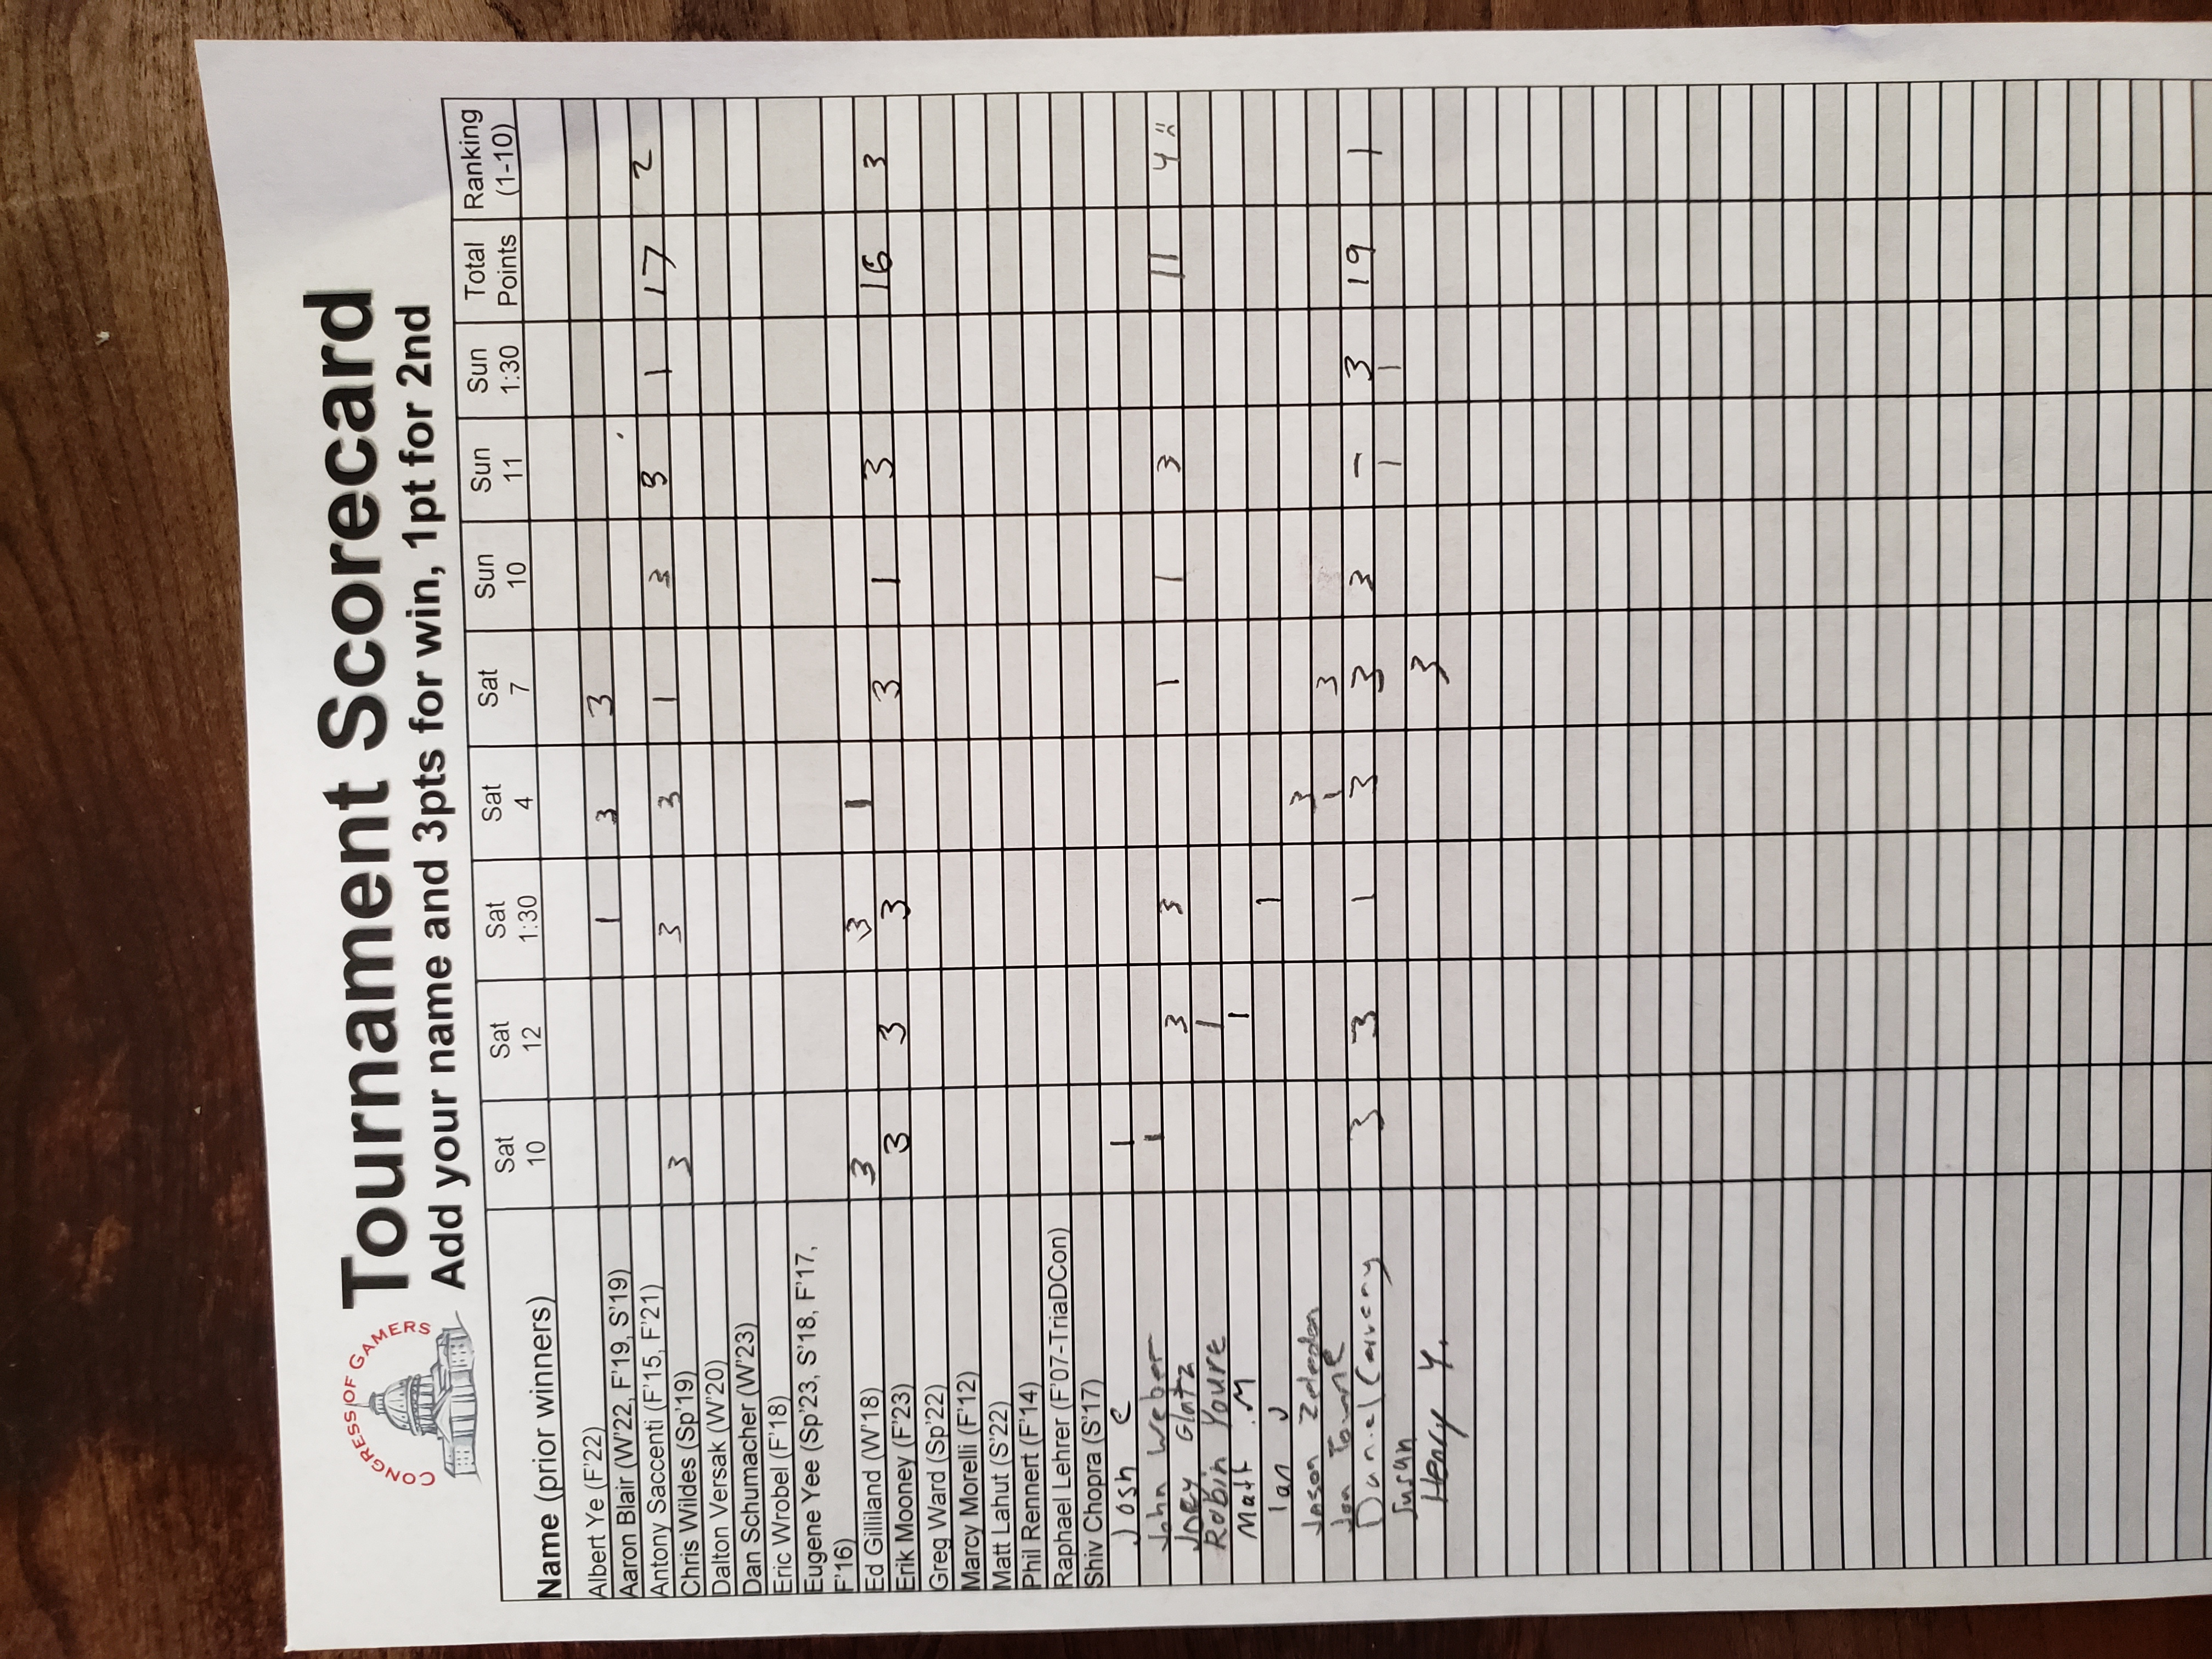 CONGRESS OF GAMERS
Tournament Scorecard
Add your name and 3pts for win, 1pt for 2nd
Name (prior winners) Sat 10 Sat 12 Sat 1:30 Sat 4 Sat 7 Sun 10 Sun 11 Sun 1:30 Total Points Ranking (1-10)
Albert Ye (F'22)
Aaron Blair (W'22, F'19, S'19) 1 3 3
Antony Saccenti (F'15, F'21)
Chris Wildes (Sp'19) 3 3 3 1 3 3 1 17 2
Dalton Versak (W'20)
Dan Schumacher (W'23)
Eric Wrobel (F'18)
Eugene Yee (Sp'23, S'18, F'17,
F'16)
Ed Gilliland (W'18) 3 3 1
Erik Mooney (F'23) 3 3 3 3 1 3 16 3
Greg Ward (Sp'22)
Marcy Morelli (F'12)
Matt Lahut (S'22)
Phil Rennert (F'14)
Raphael Lehrer (F'07-TriaDCon)
Shiv Chopra (S'17)
Josh C 1
John Weber 1
Joey Glatz 3 3 1 1 3 11 4
Robin Youre 1
Matt M 1
Ian J 1
Jason Zeledon 3
Jon Towne 1 3
Daniel Carveny 3 3 1 3 3 3 - 3 19 1
Susan 1 1
Henry Y. 3